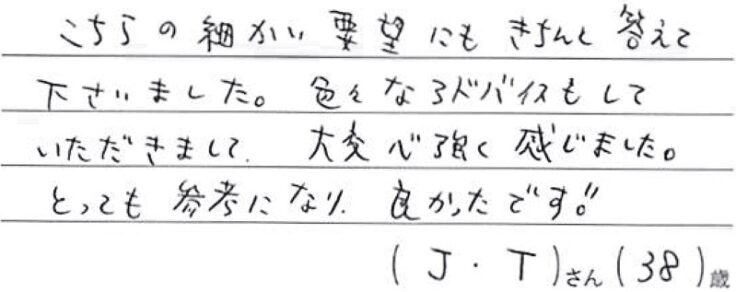 こちらの細かい要望にもきちんと答えて
下さいました。色々なアドバイスもして
いただきまして、大変心強く感じました。
とっても参考になり、良かったです!!
(J・T)さん(38)歳